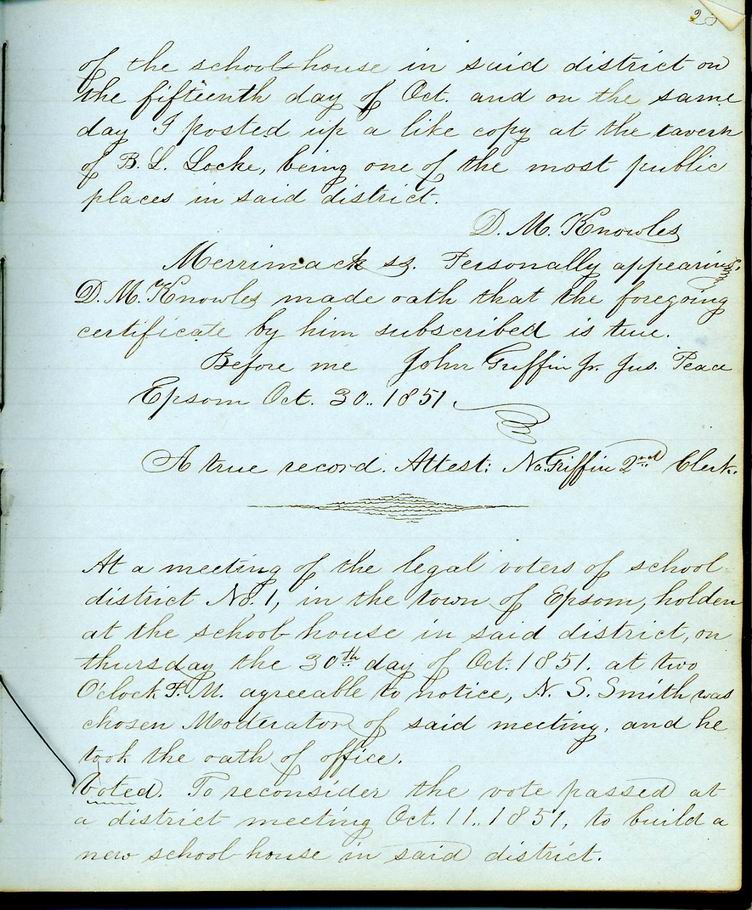 of the school-house in said district on
the fifteenth day of Oct. and on the same
day I posted up a like copy at the tavern
of B. L. Locke, being one of the most public
places in said district.
D. M. Knowles
Merrimack ss. Personally appearing
D. M. Knowles made oath that the foregoing
certificate by him subscribed is true.
Before me John Griffin Jr. Jus. Peace
Epsom Oct. 30.. 1851.
A true record. Attest: N. Griffin 2nd Clerk.
At a meeting of the legal voters of school
district No. 1, in the town of Epsom, holden
at the school-house in said district, on
thursday the 30th day of Oct. 1851. at two
O'clock P. M. agreeable to notice, N. S. Smith was
chosen Moderator of said meeting, and he
took the oath of office.
Voted. To reconsider the vote passed at
a district meeting Oct. 11.. 1851, to build a
new school-house in said district.